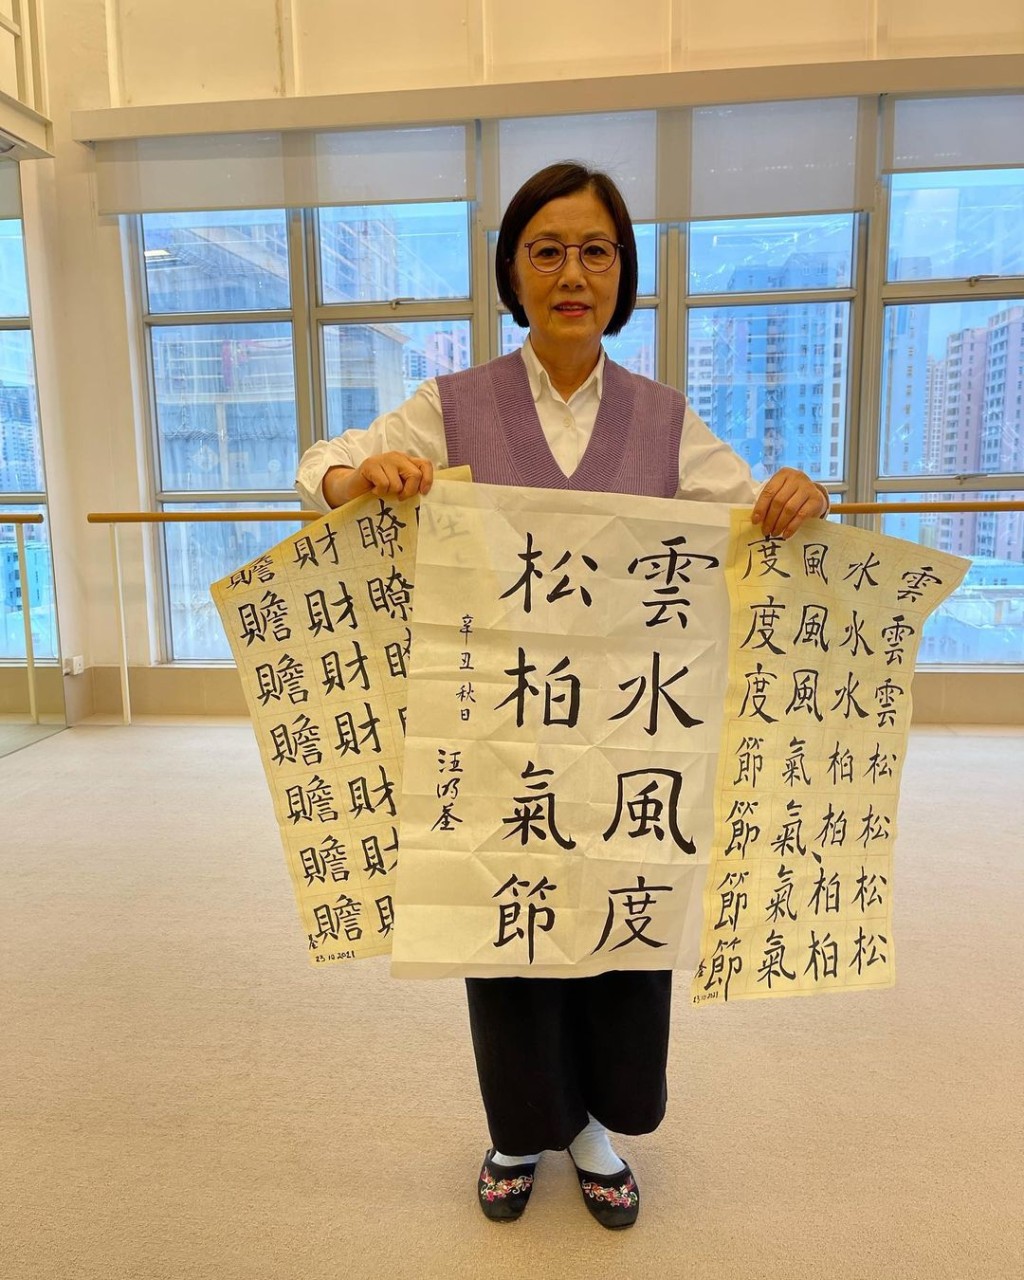 雲雲雲松松松松
水水水柏柏柏柏
風風風氣氣氣氣
度度度節節節節
荃
23.10.2021
雲水風度
松柏氣節
辛丑秋日
汪明荃
瞭瞭瞭
財財財財財財
贍贍贍贍贍贍贍
荃
23 10 2021